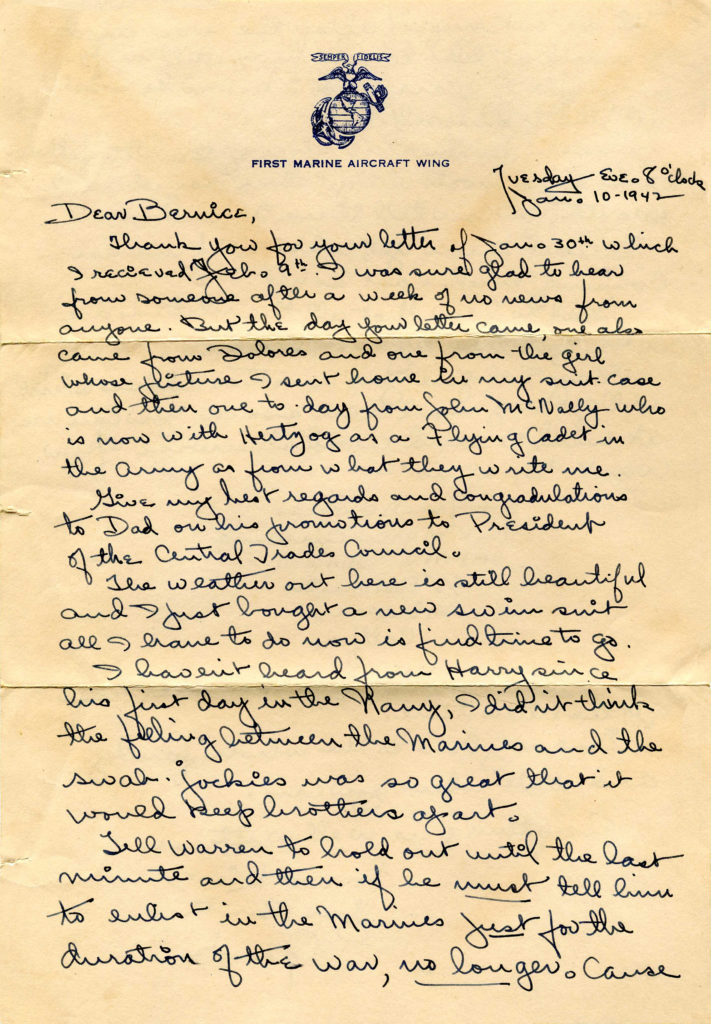 SEMPER FIDELIS
FIRST MARINE AIRCRAFT WING
Tuesday Eve. 8 o'clock
Jan. 10-1942
Dear Bernice,
Thank you for your letter of Jan. 30th which
I recieved Feb. 9th. I was sure glad to hear
from someone after a week of no news from
anyone. But the day your letter came, one also
came from Dolores and one from the girl
whose picture I sent home in my suit-case
and then one to-day from John McNally who
is now with Hertzog as a Flying Cadet in
the Army as from what they write me.
Give my best regards and congradulations
to Dad on his promotions to President
of the Central Trades Council.
The weather out here is still beautiful
and I just bought a new swim suit
all I have to do now is find time to go.
I haven't heard from Harry since
his first day in the Navy, I didn't think
the feeling between the Marines and the
swab-jockies was so great that it
would keep brothers apart.
Tell Warren to hold out until the last
minute and then if he must tell him
to enlist in the Marines just for the
duration of the war, no longer. Cause